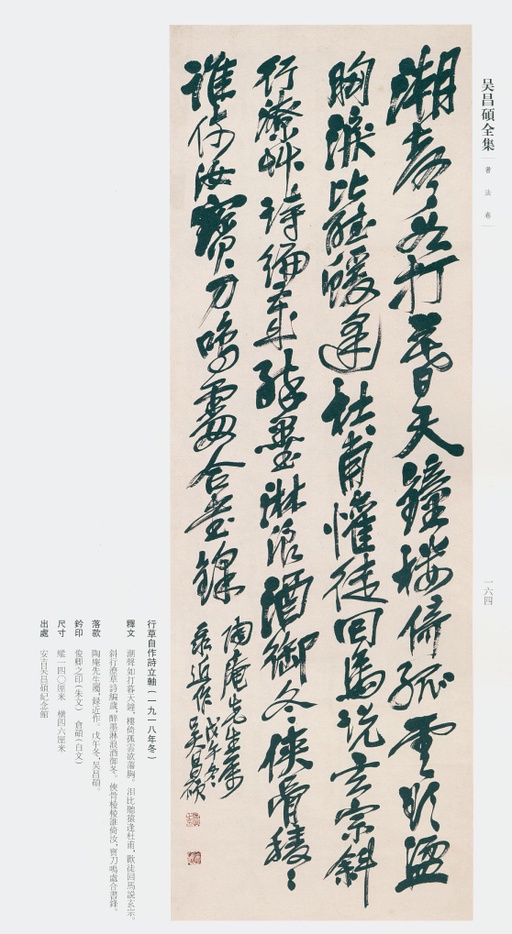 吴昌碩全集
書法卷
一六四
潮聲如打暮天鐘樓倚孤雲欲盪
胸淚比聽蝯逢杜甫懽徒回馬說玄宗斜
行潦艸詩編歲醉墨淋浪酒御冬俠骨稜〻
誰倚汝寶刀鳴處合書鋒
陶庵先生屬
彔近作戊午冬吳昌碩
行草自作詩立軸(一九一八年冬)
釋文 潮聲如打暮天鐘,樓倚孤雲欲蕩胸。泪比聽猿逢杜甫,歡徒回馬說玄宗。
斜行潦草詩編歲,醉墨淋浪酒御冬。俠骨棱棱誰倚汝,寶刀鳴處合書鋒。
落款 陶庵先生屬,録近作。戊午冬,吴昌碩。
鈐印 俊卿之印(朱文) 倉碩(白文)
尺寸 縱一四〇厘米 橫四六厘米
出處 安吉吴昌碩紀念館